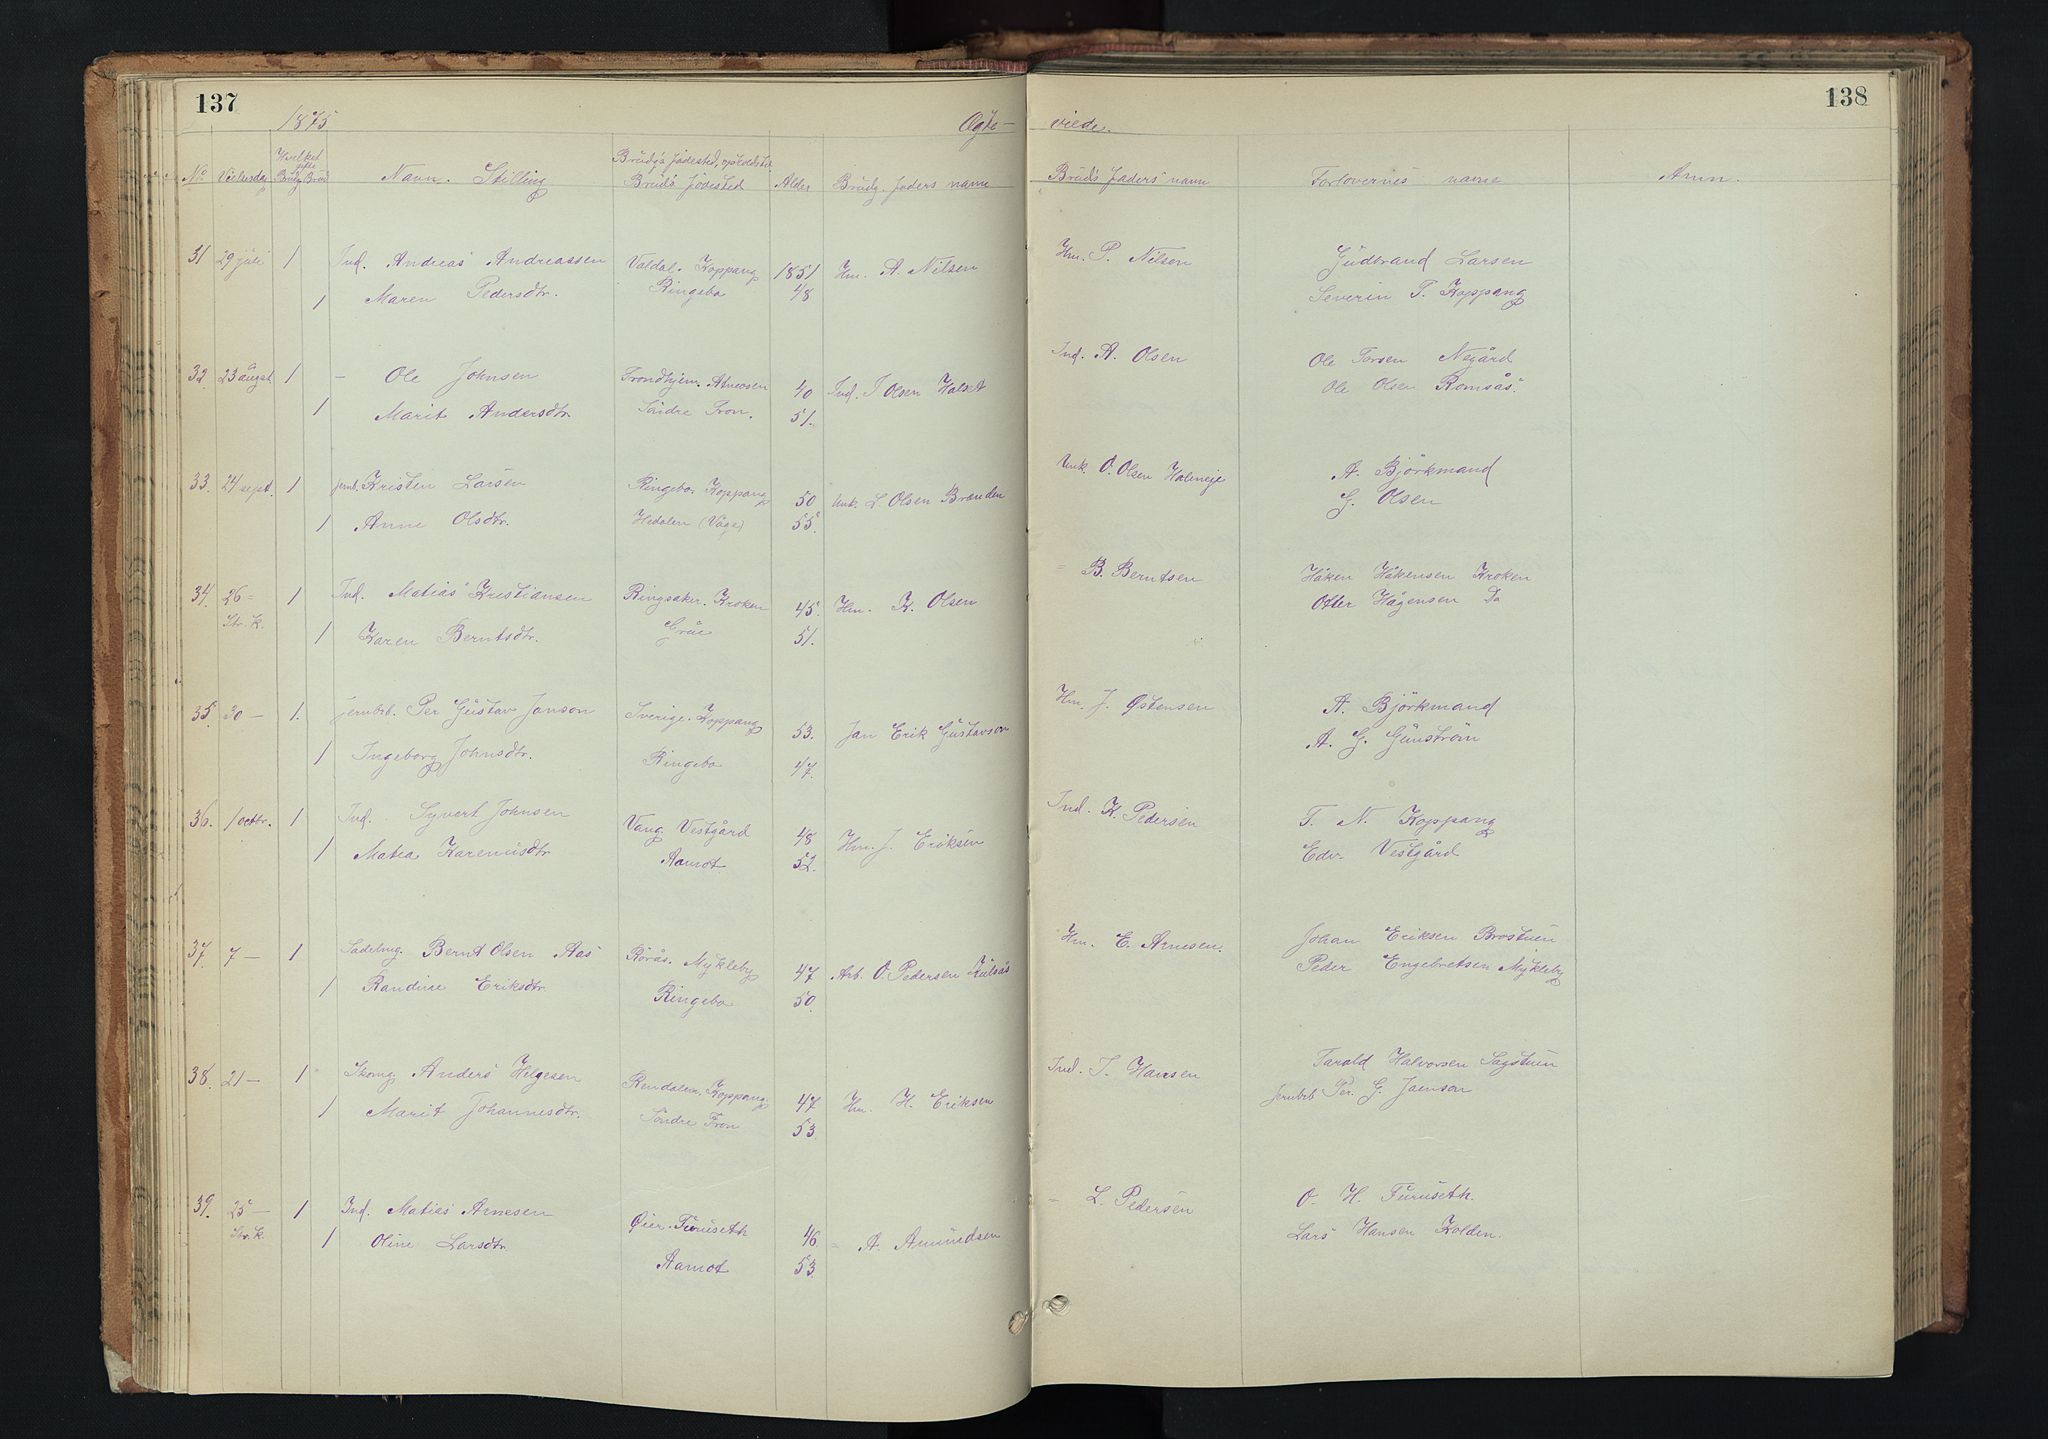 137
138
1875
Ægte-
viede.
No Vielsesdag Hvilket gifte Brudg Brud Navn. Stilling Brudg's födested, opholdsted Bruds födested Alder Brudg. faders navn
Bruds faders navn Forlovernes navne Anm.
31 29 juli 1 Ind. Andreas Andreassen Valdal. Koppang 1851 Hm. A. Nilsen Hm. P. Nilsen Gudbrand Larsen
1 Maren Pedersdtr. Ringebo 48 Severin T. Koppang
32 23 august 1 - Ole Johnsen Trondhjem. Atneosen 40 Ind. J Olsen Halset Ind. A. Olsen Ole Torsen Negård
1 Marit Andersdtr. Söndre Fron. 51. Ole Olsen Romsås.
33. 24 sept. 1 jernb. Kristen Larsen Ringebo. Koppang 50 Unk. L. Olsen Brænden Unk. O. Olsen Haleneje A. Björkmand
1 Anne Olsdtr. Hedalen (Våge) 55. G. Olsen
34. 26 = 1 Ind. Matias Kristiansen Ringsaker. Kroken 45. Hm. K. Olsen = B. Berntsen Håken Håkensen Kroken
Str. K. 1 Karen Berntsdtr. Grue 51. Otter Hågensen Do
35. 30 - 1. jernbb. Per Gustav Janson Sverige. Koppang 53. Jan Erik Gustavson Hm. J. Østensen A. Björkmand
1 Ingeborg Johnsdtr. Ringebo 47. A. G. Günström
36. 1 octbr. 1 Ind. Syvert Johnsen Vang. Vestgård 48 Hm. J. Eriksen Ind. K. Pedersen T. N. Koppang
1 Matea Karenusdtr Aamot 52. Edv. Vestgård
37. 7 - 1 Sadelmg. Bernt Olsen Aas Rörås. Mykleby 47 Arb. O. Pedersen Hm. E. Arnesen. Johan Eriksen Brostuen
1 Randine Eriksdtr. Ringebo 50. Peder Engebretsen Mykleby
38. 21 - 1 Skomg. Anders Helgesen Rendalen. Koppang. 47 Hm. H. Eriksen Ind. J. Hansen Tarald Halvorsen Sagstuen
1 Marit Johannesdtr. Söndre Fron 53. jernbb Per. G. Janson
39. 25 - 1 Ind. Matias Arnesen Øier. Furuseth 46. = A. Amundsen = L. Pedersen O. H. Furuseth.
Str. K. 1 Oline Larsdtr. Aamot 53. Lars Hansen Kolden.